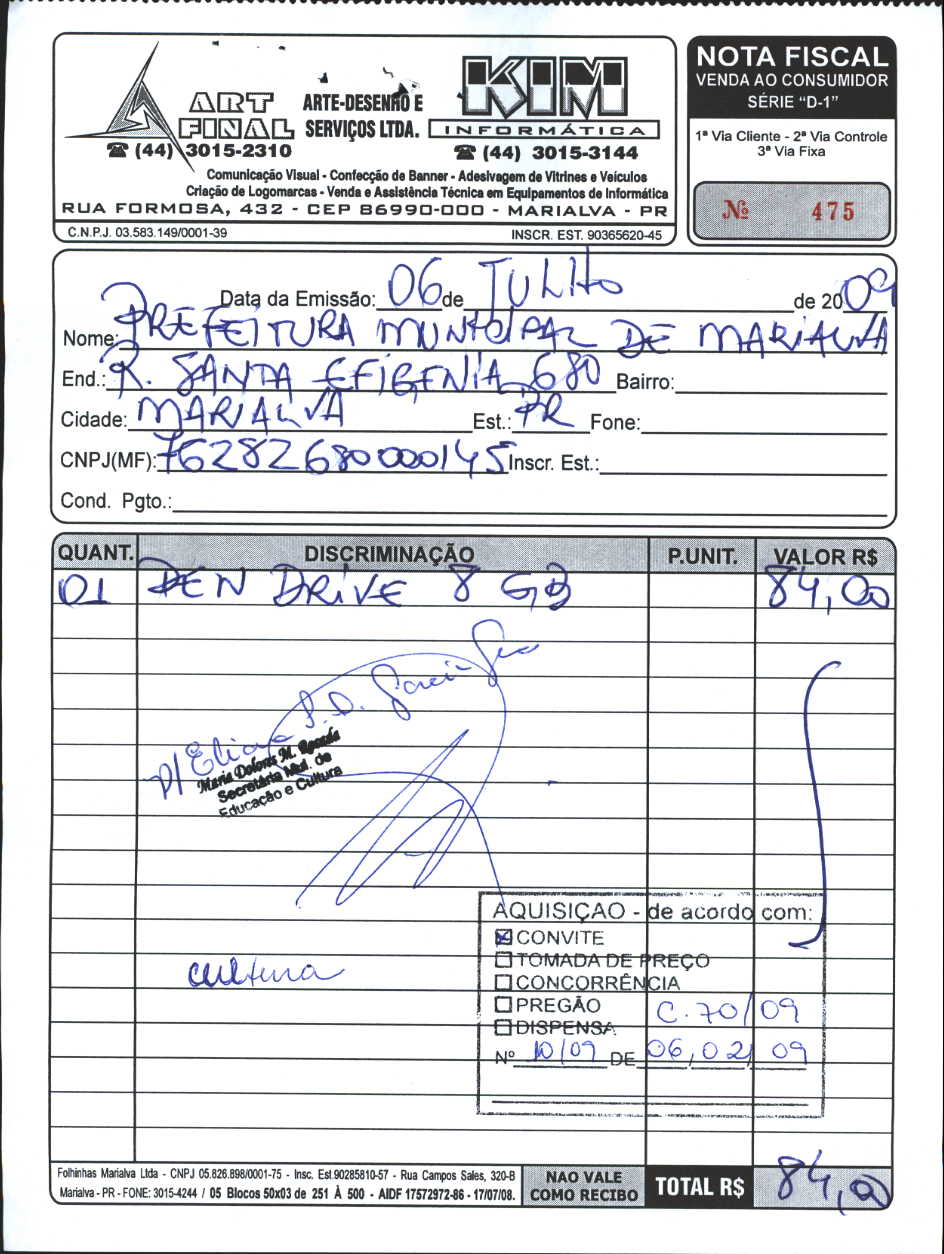 ART FINAL
ARTE-DESENHO E SERVIÇOS LTDA.
KIM INFORMÁTICA
(44) 3015-2310
(44) 3015-3144
Comunicação Visual - Confecção de Banner - Adesivagem de Vitrines e Veículos
Criação de Logomarcas - Venda e Assistência Técnica em Equipamentos de Informática
RUA FORMOSA, 432 - CEP 86990-000 - MARIALVA - PR
C.N.P.J. 03.583.149/0001-39 INSCR. EST. 90365620-45
NOTA FISCAL
VENDA AO CONSUMIDOR
SÉRIE "D-1"
1ª Via Cliente - 2ª Via Controle
3ª Via Fixa
Nº 475
Data da Emissão: 06 de JULHO de 2009
Nome: PREFEITURA MUNICIPAL DE MARIALVA
End.: R. SANTA EFIGENIA 680 Bairro:
Cidade: MARIALVA Est.: PR Fone:
CNPJ(MF): 76282680000145 Inscr. Est.:
Cond. Pgto.:
QUANT. DISCRIMINAÇÃO P.UNIT. VALOR R$
01 PEN DRIVE 8 GB 84,00
P/ Eliana
Maria Dolores M.
Secretária Mul. de
Educação e Cultura
cultura
AQUISIÇAO - de acordo com:
CONVITE
TOMADA DE PREÇO
CONCORRÊNCIA
PREGÃO C.70/09
DISPENSA
Nº 10/09 DE 06,02/09
Folhinhas Marialva Ltda - CNPJ 05.826.898/0001-75 - Insc. Est.90285810-57 - Rua Campos Sales, 320-B
Marialva - PR - FONE: 3015-4244 / 05 Blocos 50x03 de 251 À 500 - AIDF 17572972-86 - 17/07/08.
NAO VALE
COMO RECIBO
TOTAL R$ 84,00